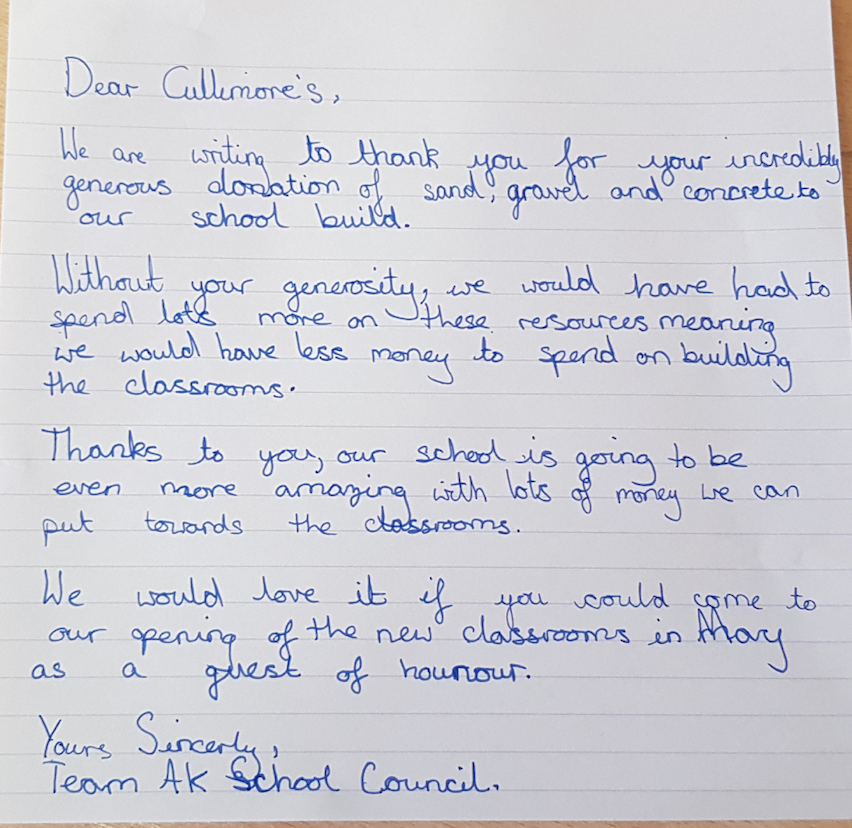 Dear Cullimore's,
We are writing to thank you for your incredibly
generous donation of sand, gravel and concrete to
our school build.
Without your generosity, we would have had to
spend lots more on these resources meaning
we would have less money to spend on building
the classrooms.
Thanks to you, our school is going to be
even more amazing with lots of money we can
put towards the classrooms.
We would love it if you could come to
our opening of the new classrooms in May
as a guest of hounour.
Yours Sincerly,
Team AK School Council.